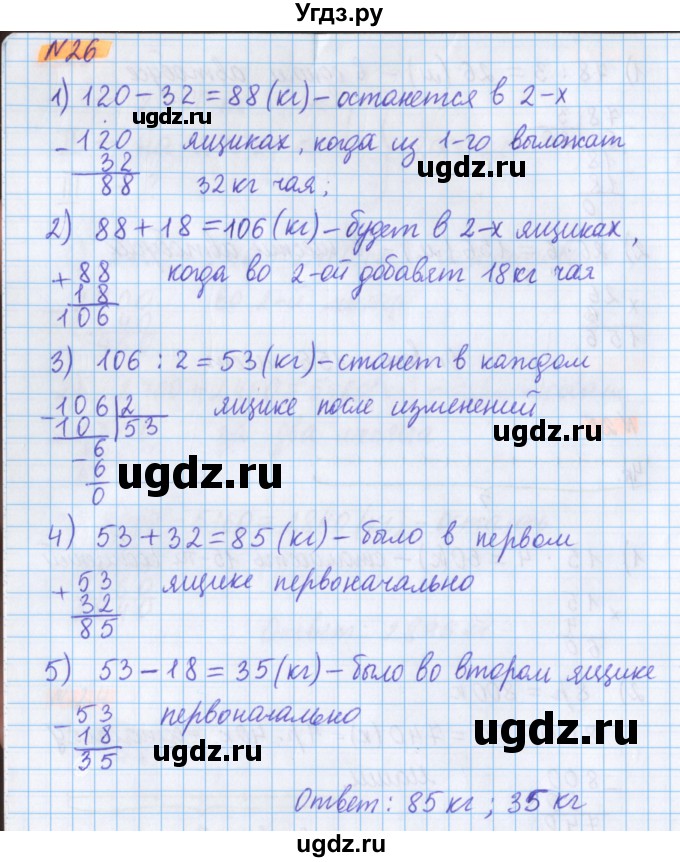 Угдз.ру
№26
1) 120 − 32 = 88 (кг) − останется в 2-х
− 120 ящиках, когда из 1-го выложат
32
88 32 кг чая;
2) 88 + 18 = 106 (кг) − будет в 2-х ящиках,
+ 88 когда во 2-ой добавят 18 кг чая
18
106
3) 106 : 2 = 53 (кг) − станет в каждом
− 106 | 2 ящике после изменений
10 53
− 6
6
0
4) 53 + 32 = 85 (кг) − было в первом
+ 53 ящике первоначально
32
85
5) 53 − 18 = 35 (кг) − было во втором ящике
− 53 первоначально
18
35
Ответ: 85 кг; 35 кг
ugdz.ru
ugdz.ru
ugdz.ru
ugdz.ru
ugdz.ru
ugdz.ru
ugdz.ru
ugdz.ru
ugdz.ru